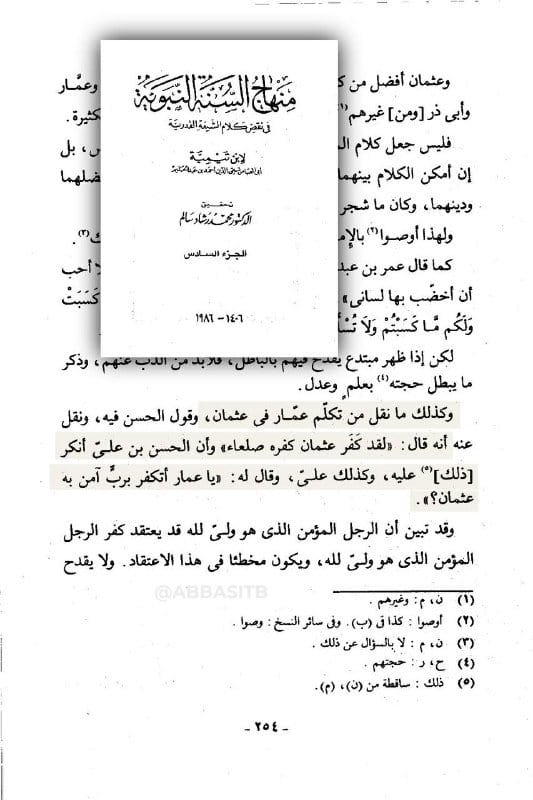 منهاج السنة النبوية
في نقض كلام الشيعة القدرية
لابن تيمية
أبي العباس تقي الدين أحمد بن عبد الحليم
تحقيق
الدكتور محمد رشاد سالم
الجزء السادس
١٤٠٦ - ١٩٨٦
وعثمان أفضل من ك
وعمَّار
وأبى ذر [ومن] غيرهم(١)
كثيرة.
فليس جعل كلام الم
س، بل
إن أمكن الكلام بينهما
ضلهما
ودينهما، وكان ما شجر
ولهذا أوصوا(٢) بالإم
ك(٣).
كما قال عمر بن عبد
لا أحب
أن أخضّب بها لسانى».
كَسَبَتْ
وَلَكُم مَّا كَسَبْتُمْ وَلَا تُسْأَ
لكن إذا ظهر مبتدع يقدح فيهم بالباطل، فلا بد من الذب عنهم، وذكر
ما يبطل حجته(٤) بعلم وعدل.
وكذلك ما نقل من تكلّم عمّار فى عثمان، وقول الحسن فيه، ونقل
عنه أنه قال: «لقد كَفَر عثمان كفره صلعاء» وأن الحسن بن علىّ أنكر
[ذلك](٥) عليه، وكذلك علىّ، وقال له: «يا عمار أتكفر بربٍّ آمن به
عثمان؟».
وقد تبين أن الرجل المؤمن الذى هو ولىّ لله قد يعتقد كفر الرجل
المؤمن الذى هو ولىّ لله، ويكون مخطئا فى هذا الاعتقاد. ولا يقدح
@ABBASITB
(١) ن، م: وغيرهم.
(٢) أوصوا: كذا فى (ب). وفى سائر النسخ: وصوا.
(٣) ن، م: لا بالسؤال عن ذلك.
(٤) ح، ر: حجتهم.
(٥) ذلك: ساقطة من (ن)، (م).
- ٢٥٤ -